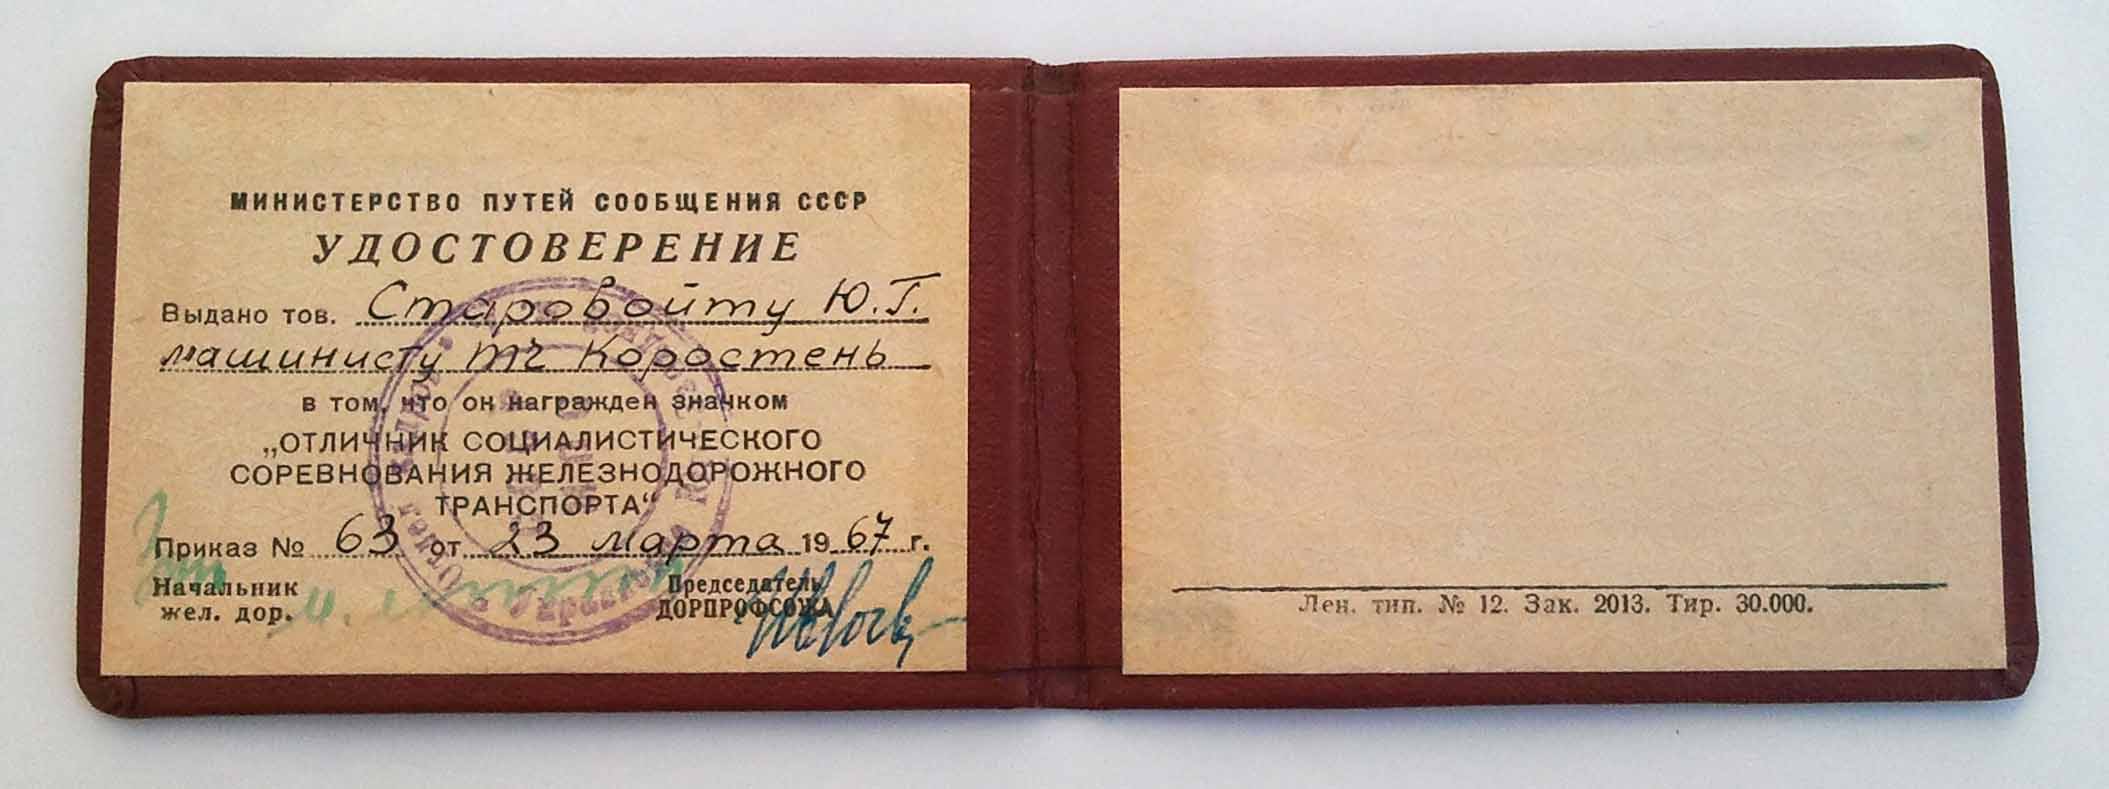 МИНИСТЕРСТВО ПУТЕЙ СООБЩЕНИЯ СССР
УДОСТОВЕРЕНИЕ
Выдано тов. Старовойту Ю.Г.
машинисту ТЧ Коростень
в том, что он награжден значком
„ОТЛИЧНИК СОЦИАЛИСТИЧЕСКОГО
СОРЕВНОВАНИЯ ЖЕЛЕЗНОДОРОЖНОГО
ТРАНСПОРТА“
Приказ № 63 от 23 марта 1967 г.
Начальник
жел. дор.
Председатель
ДОРПРОФСОЖА
Лен. тип. № 12. Зак. 2013. Тир. 30.000.